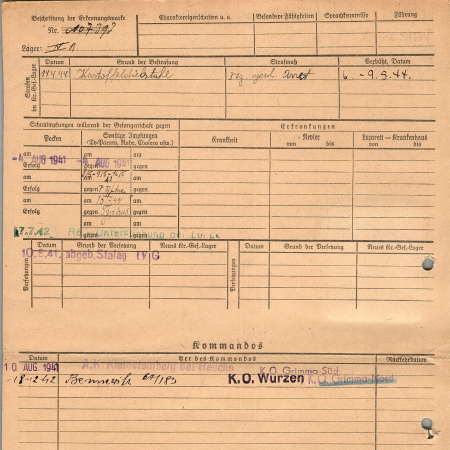 Beschriftung der Erkennungsmarke
Nr.
Lager: IV B
Charaktereigenschaften u. a.
Besondere Fähigkeiten
Sprachkenntnisse
Führung
Strafen im Kr.-Gef.-Lager
Datum
Grund der Bestrafung
Strafmaß
Verbüßt, Datum
Kartoffeldiebstahl
6. - 9.5.44.
Schutzimpfungen während der Gefangenschaft gegen
Erkrankungen
Pocken
Sonstige Impfungen
(Ty-Paraty, Ruhr, Cholera usw.)
Krankheit
Revier
von bis
Lazarett – Krankenhaus
von bis
am am am
-4 AUG 1941 -4 AUG 1941
Erfolg gegen gegen
am am am
Erfolg gegen gegen
am am am
Erfolg gegen gegen
am am
gegen gegen
17.7.42 Rö. Untersuchung der Lunge
Versetzungen
Datum
Grund der Versetzung
Neues Kr.-Gef.-Lager
Versetzungen
Datum
Grund der Versetzung
Neues Kr.-Gef.-Lager
10.8.41. abgeb. Stalag IV G
Kommandos
Datum
Art des Kommandos
Rückkehrdatum
10 AUG. 1941 A.K. Kleinsteinberg bei Beucha K.O. Grimma-Süd
18.12.42 Bennewitz K.O. Wurzen K.O. Grimma-Nord